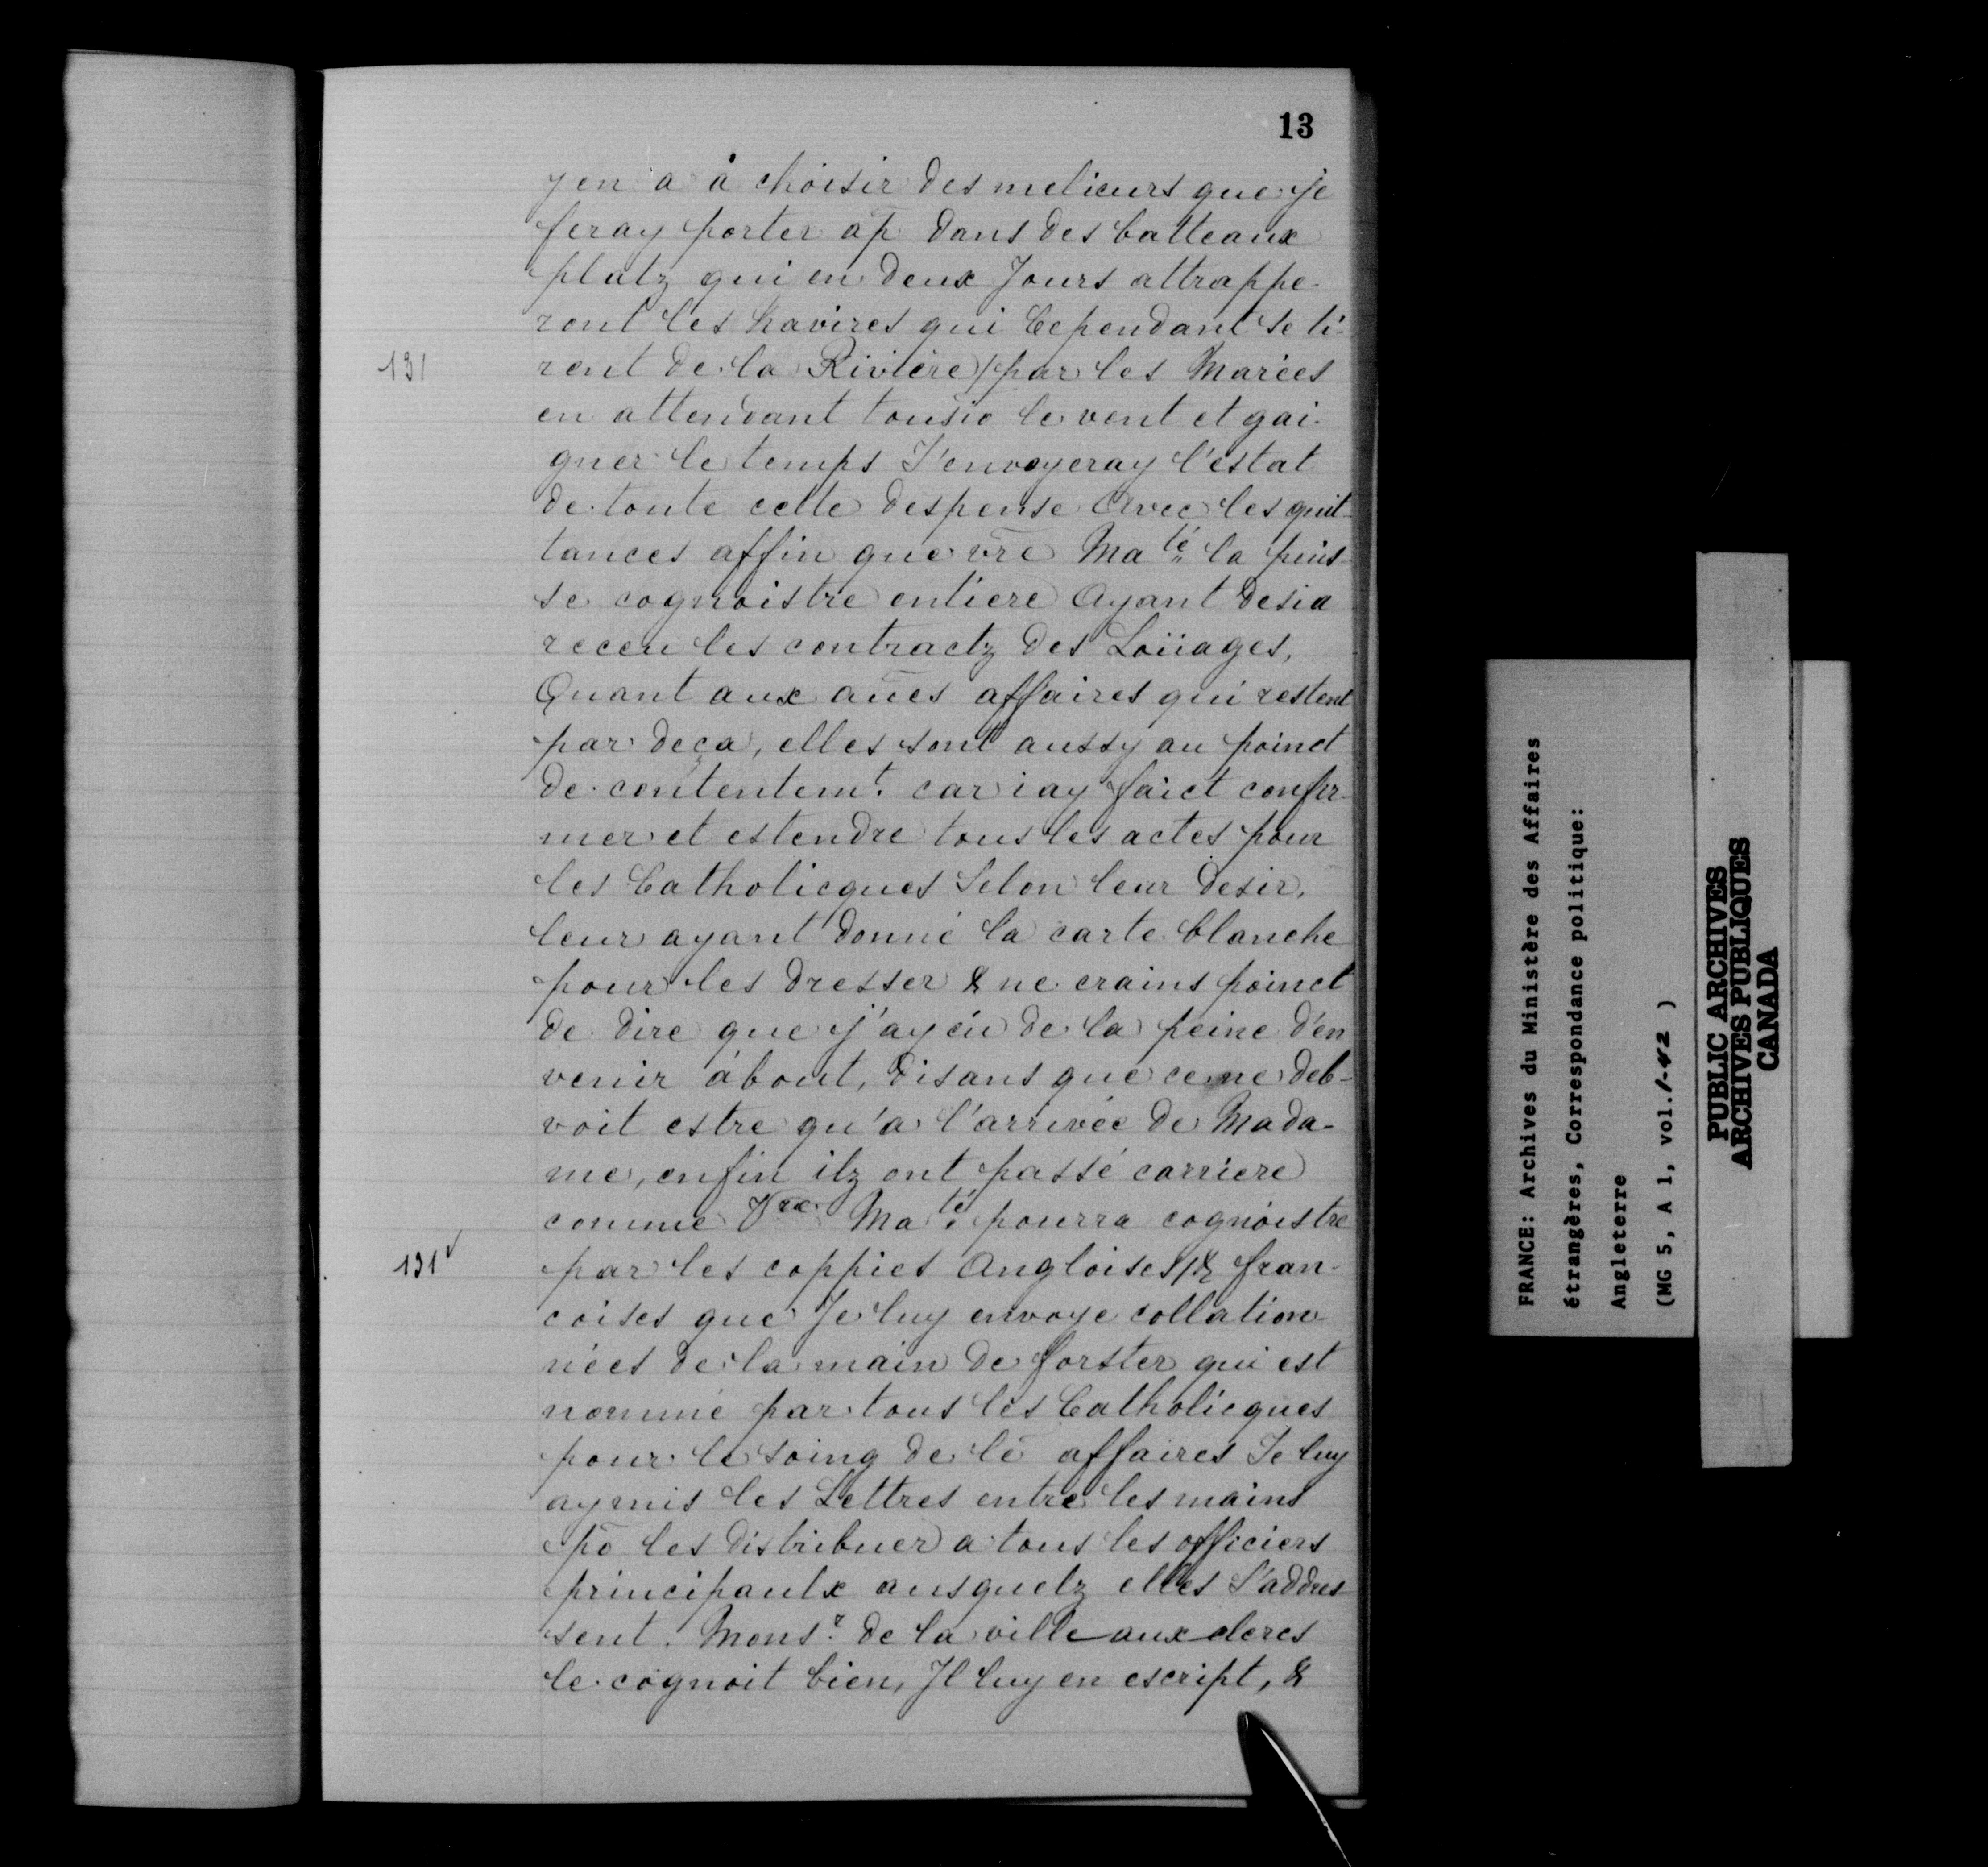 13
y en a à choisir des melieurs que je
feray porter ap̄ dans des batteaux
platz qui en deux Jours attrappe-
ront les Navires qui Cependant se ti-
131
rent de la Rivière/par les Marées
en attendant tousio le vent et gai-
gner le temps J'envoyeray l'estat
de toute cette despense Avec les quit-
tances affin que vr̄e Ma té la puis-
se cognoistre entiere Ayant desia
receu les contractz des Loüages,
Quant aux au͞es affaires qui restent
par deça, elles sont aussy au poinct
de contentem.t car i ay faict confir-
mer et estendre tous les actes pour
les Catholicques Selon leur desir,
leur ayant donné la carte blanche
pour les dresser & ne crains poinct
de dire que j'ay eü de la peine d'en
venir àbout, disans que ce ne deb-
voit estre qu'a l'arrivée de Mada-
me, enfin ilz ont passé carriere
comme Vre Ma.té pourra cognoistre
131v
par les coppies Angloises/& fran-
coises que Je luy envoye collation-
nées de la main de forster qui est
nommé par tous les Catholicques
pour le soing de le͞ affaires Je luy
ay mis les Lettres entre les mains
po͞ les distribuer a tous les officiers
principaulx ausquelz elles s'addres
sent. Mons.r de la ville aux clercs
le cognoit bien, Il luy en escript, &
FRANCE: Archives du Ministère des Affaires
étrangères, Correspondance politique:
Angleterre
(MG 5, A 1, vol. 1-42 )
PUBLIC ARCHIVES
ARCHIVES PUBLIQUES
CANADA